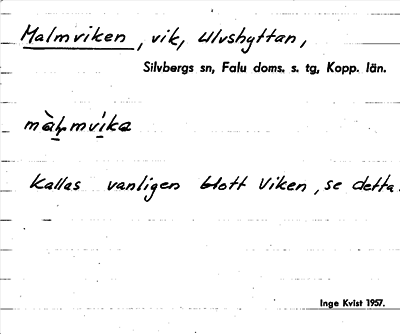 Malmviken, vik, Ulvshyttan,
Silvbergs sn, Falu doms. s. tg, Kopp. län.
Kallas vanligen blott Viken, se detta.
Inge Kvist 1957.